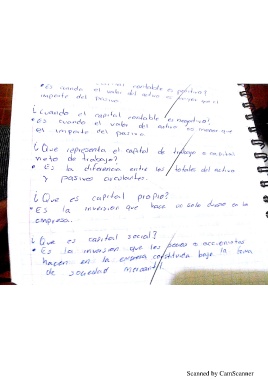 contable es positivo?
• Es cuando el valor del activo es mayor que el
importe del pasivo.
¿Cuando el capital contable es negativo?
• Es cuando el valor del activo es menor que
el importe del pasivo.
¿Que representa el capital de trabajo o capital
neto de trabajo?
• Es la diferencia entre los totales del activo
y pasivo circulantes.
¿Que es capital propio?
• Es la inversion que hace un solo dueño en la
empresa.
¿Que es capital social?
• Es la inversion que los socios o accionistas
hacen en la empresa constituida bajo la forma
de sociedad mercantil.
Scanned by CamScanner